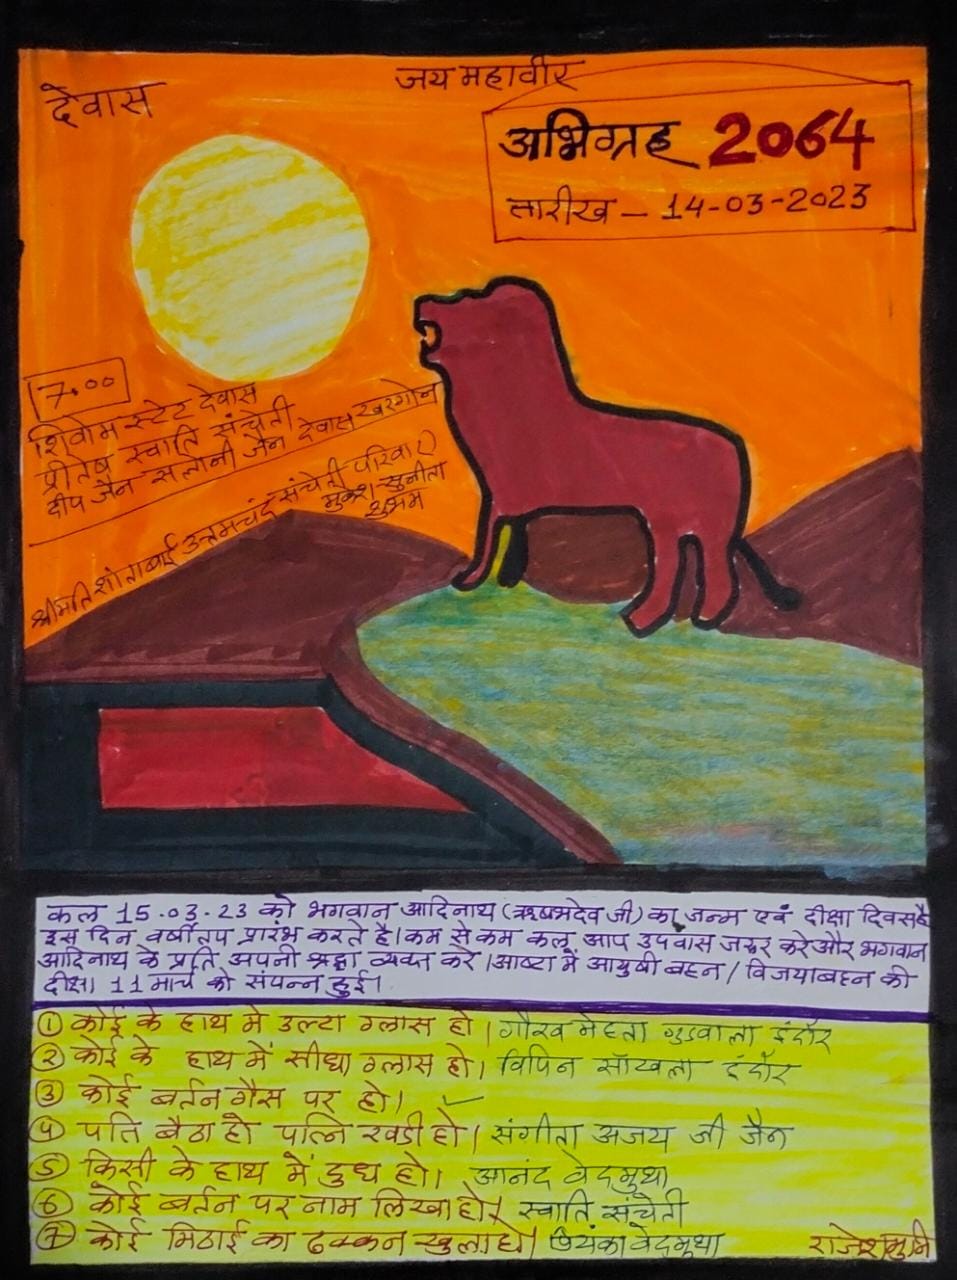 जय महावीर
देवास
अभिग्रह 2064
तारीख - 14-03-2023
7.00
शिवोम स्टेट देवास
प्रीतेष स्वाति संचेती
दीप जैन सलोनी जैन देवास खरगोन
श्रीमति शांताबाई उत्तमचंद संचेती परिवार
मुकेश सुनीता
शुभम
कल 15.03.23 को भगवान आदिनाथ (ऋषभदेव जी) का जन्म एवं दीक्षा दिवस है
इस दिन वर्षीतप प्रारंभ करते है। कम से कम कल आप उपवास जरूर करे और भगवान
आदिनाथ के प्रति अपनी श्रद्धा व्यक्त करे। आष्टा में आयुषी बहन / विजयाबहन की
दीक्षा 11 मार्च को संपन्न हुई।
① कोई के हाथ मे उल्टा ग्लास हो। गौरव मेहता गुडवाला इंदौर
② कोई के हाथ में सीधा ग्लास हो। विपिन साँखला इंदौर
③ कोई बर्तन गैस पर हो।
④ पति बैठा हो पत्नि खडी हो। संगीता अजय जी जैन
⑤ किसी के हाथ में दुध हो। आनंद वेदमुथा
⑥ कोई बर्तन पर नाम लिखा हो। स्वाति संचेती
⑦ कोई मिठाई का ढक्कन खुला हो। प्रियंका वेदमुथा
राजेशमुनि